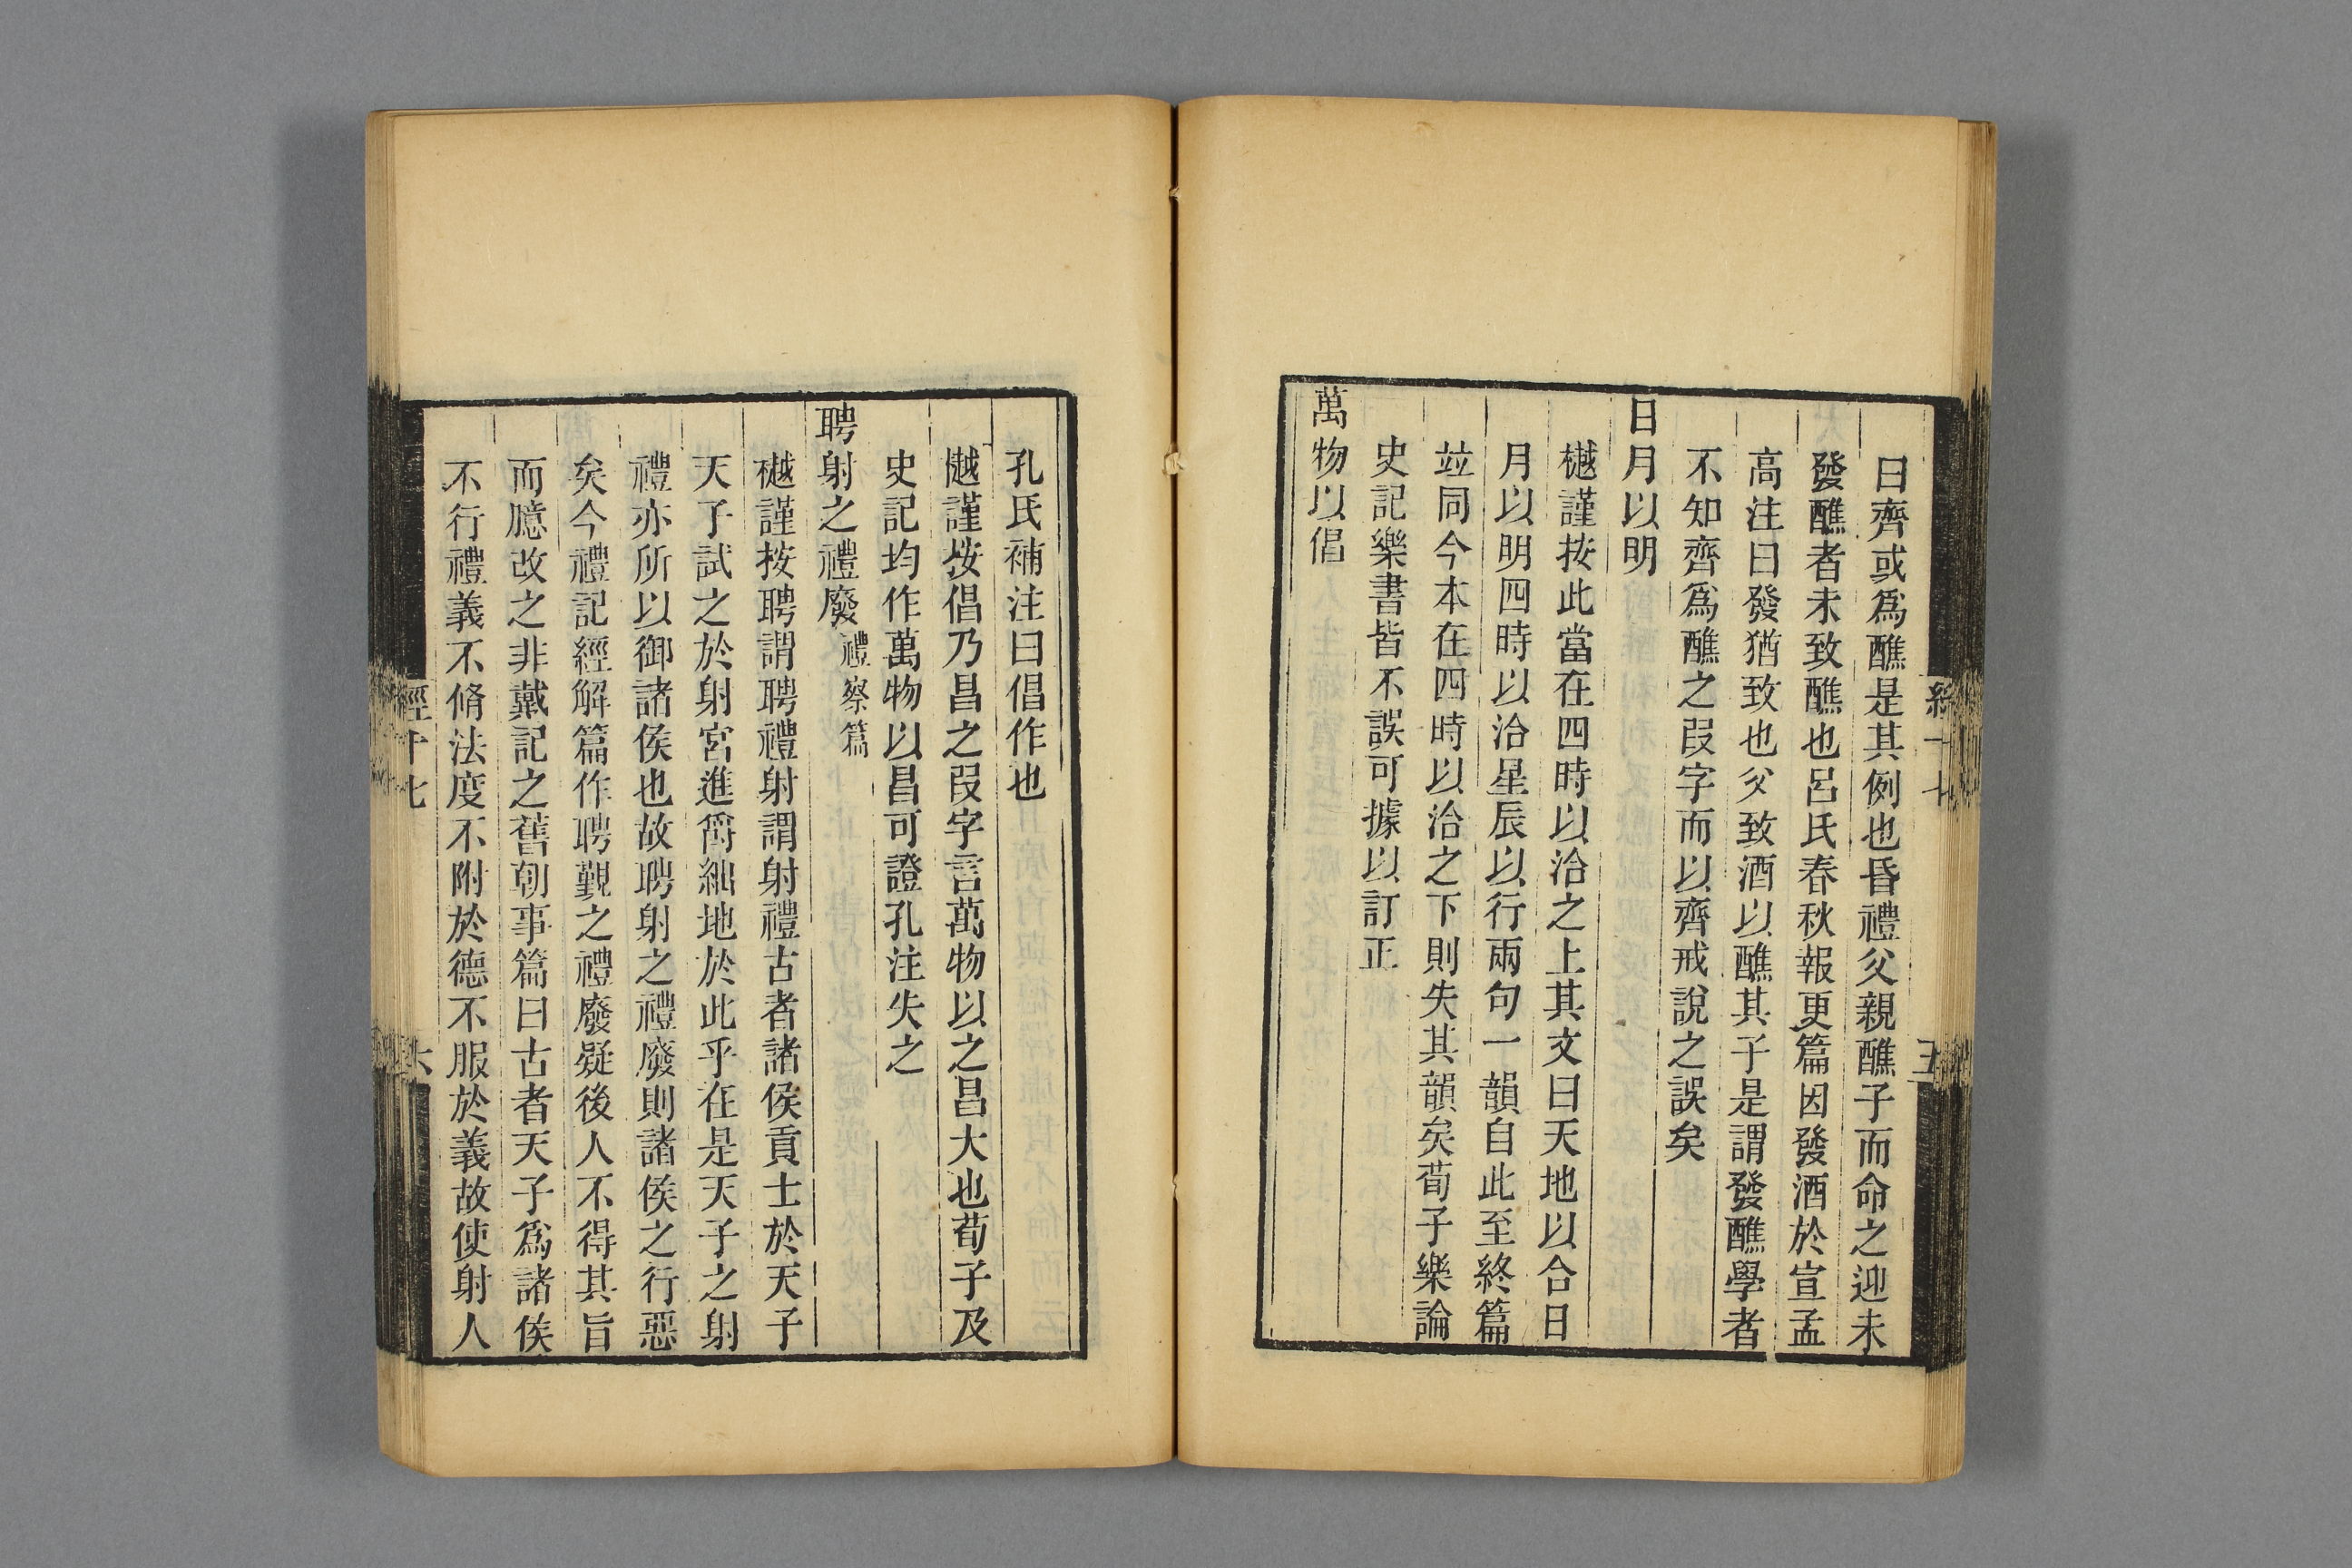 曰齊或爲醮是其例也昏禮父親醮子而命之迎未
發醮者未致醮也呂氏春秋報更篇因發酒於宣孟
高注曰發猶致也父致酒以醮其子是謂發醮學者
不知齊爲醮之叚字而以齊戒說之誤矣
日月以明
樾謹按此當在四時以洽之上其文曰天地以合日
月以明四時以洽星辰以行兩句一韻自此至終篇
竝同今本在四時以洽之下則失其韻矣荀子樂論
史記樂書皆不誤可據以訂正
萬物以倡
孔氏補注曰倡作也
樾謹按倡乃昌之叚字言萬物以之昌大也荀子及
史記均作萬物以昌可證孔注失之
聘射之禮廢禮察篇
樾謹按聘謂聘禮射謂射禮古者諸侯貢士於天子
天子試之於射宮進爵絀地於此乎在是天子之射
禮亦所以御諸侯也故聘射之禮廢則諸侯之行惡
矣今禮記經解篇作聘覲之禮廢疑後人不得其旨
而臆改之非戴記之舊朝事篇曰古者天子爲諸侯
不行禮義不脩法度不附於德不服於義故使射人
經十七
六